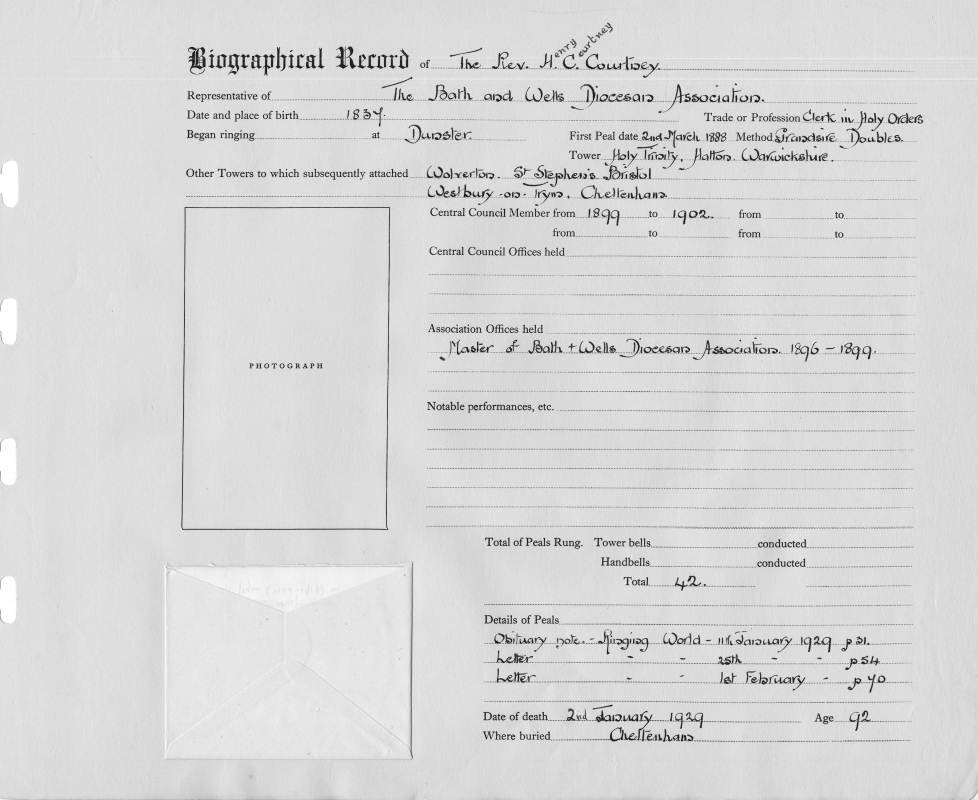 Biographical Record of The Rev. H. C. Courtney.
enry ourtney
Representative of The Bath and Wells Diocesan Association.
Date and place of birth 1837. Trade or Profession Clerk in Holy Orders
Began ringing at Dunster. First Peal date 2nd March 1888 Method Grandsire Doubles.
Tower Holy Trinity, Hatton. Warwickshire.
Other Towers to which subsequently attached Wolverton. St Stephen's Bristol
Westbury-on-Trym, Cheltenham
Central Council Member from 1899 to 1902. from to
from to from to
Central Council Offices held
Association Offices held
Master of Bath + Wells Diocesan Association. 1896 – 1899.
PHOTOGRAPH
Notable performances, etc.
Total of Peals Rung. Tower bells conducted
Handbells conducted
Total 42.
Details of Peals
Obituary note. - Ringing World - 11th January 1929 p 31.
Letter - - 25th - - p 54
Letter - - 1st February - p 70
Date of death 2nd January 1929 Age 92
Where buried Cheltenham